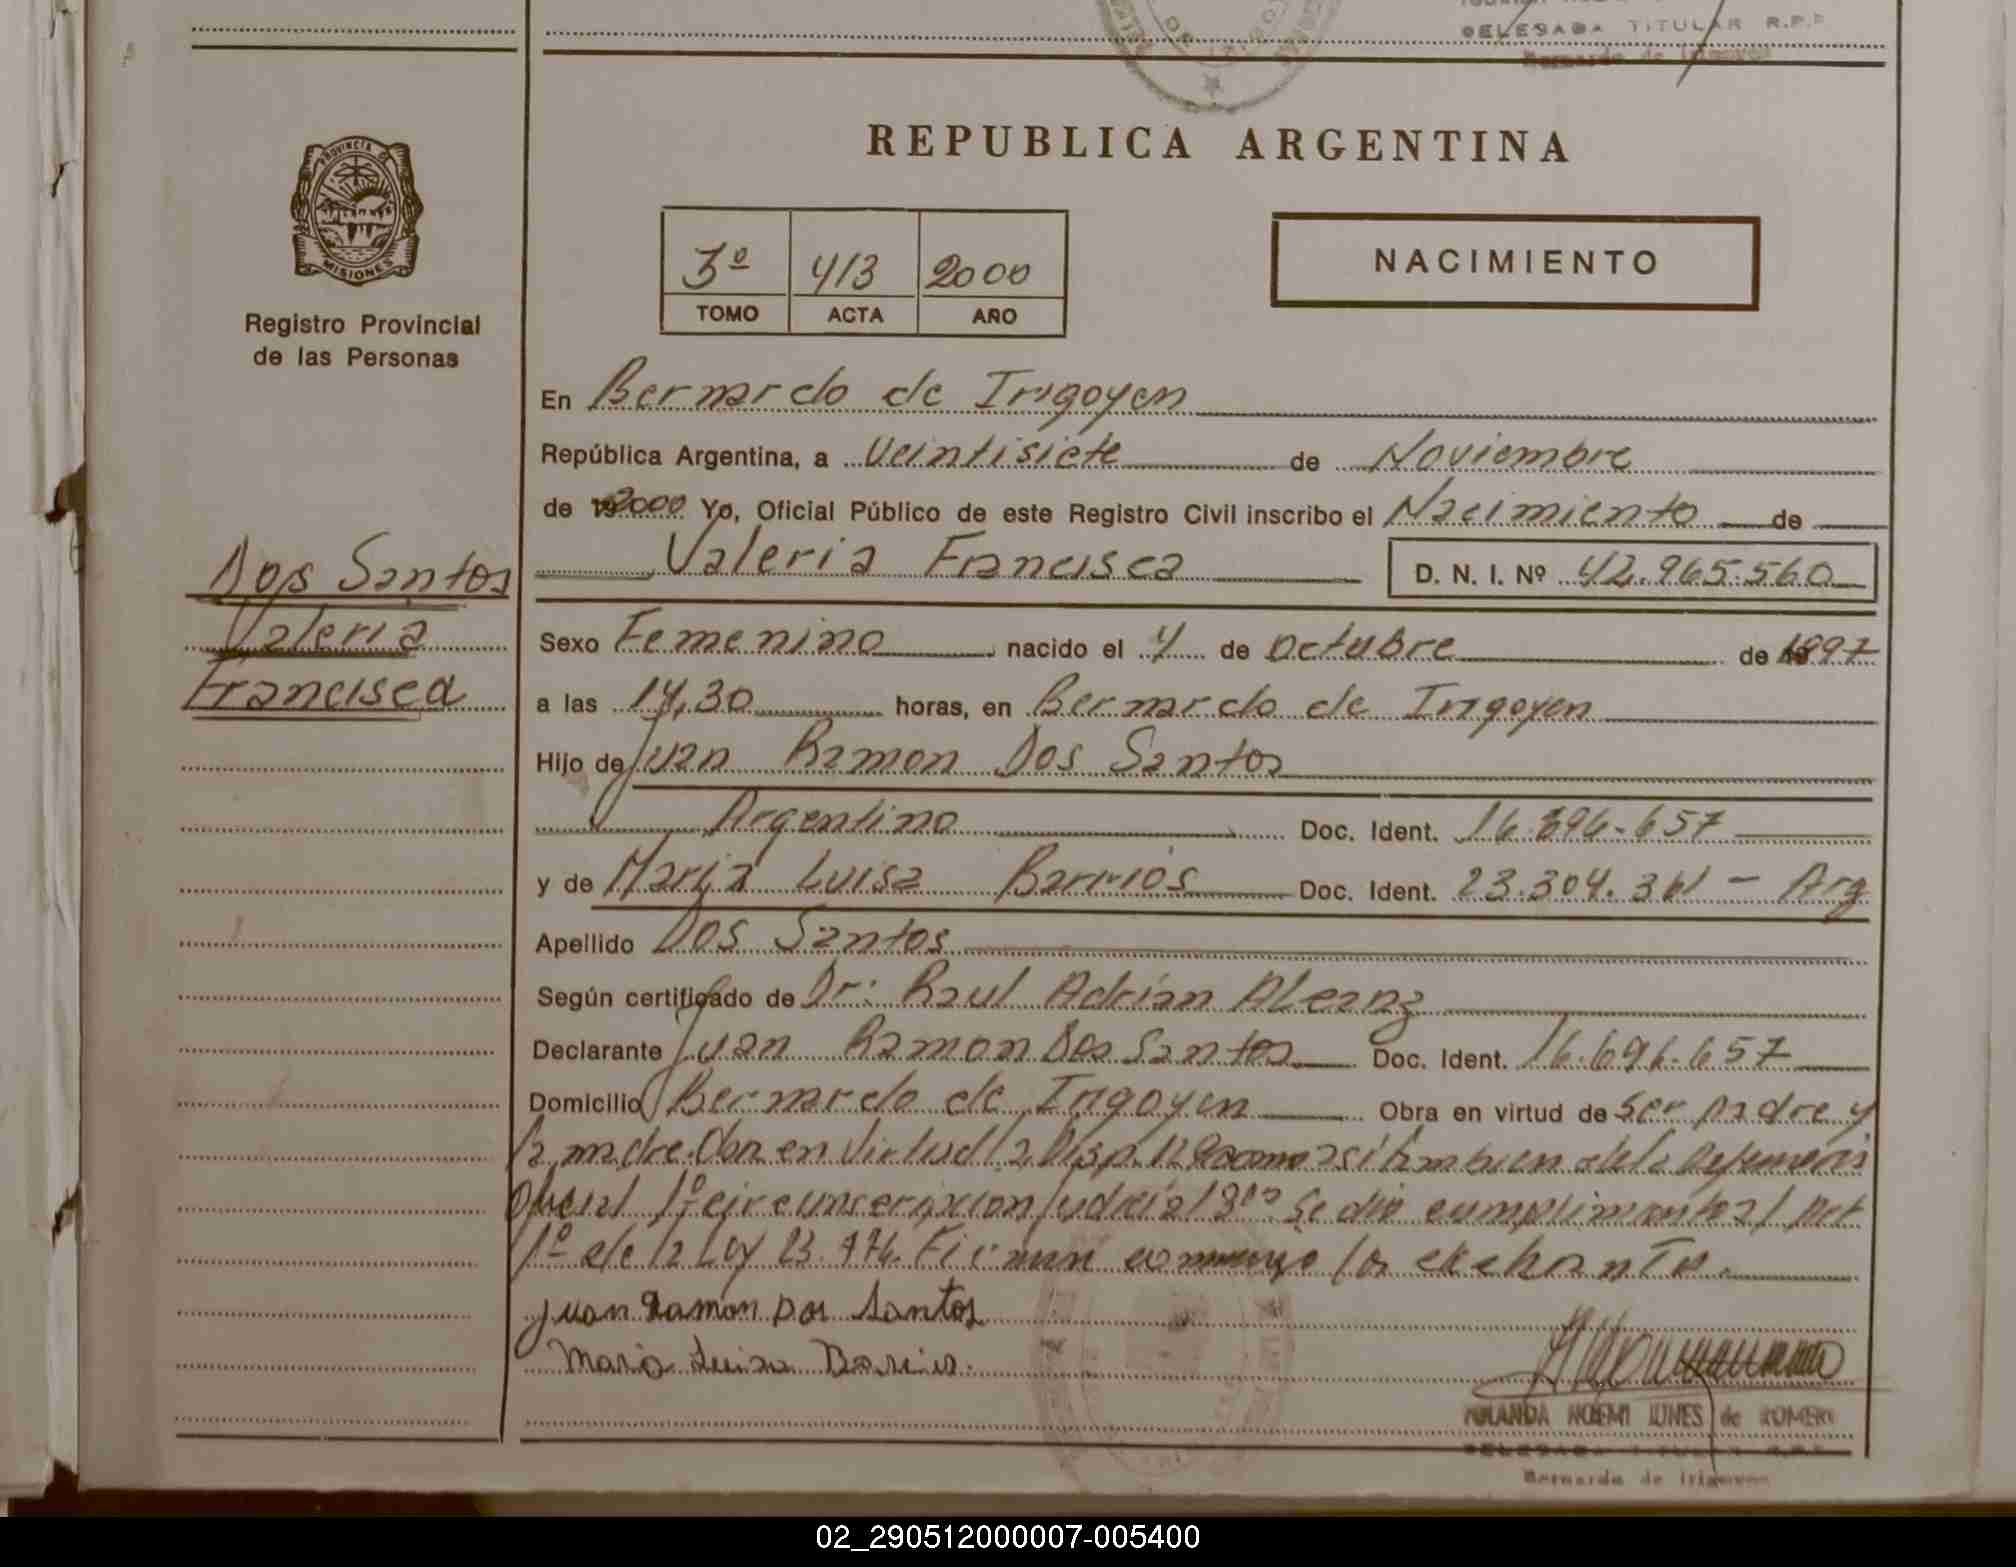 DELEGADA TITULAR R.P.P
Bernardo de Irigoyen
PROVINCIA DE
MISIONES
Registro Provincial
de las Personas
Dos Santos
Valeria
Francisca
REPUBLICA ARGENTINA
3º 413 2000
TOMO ACTA AÑO
NACIMIENTO
En Bernardo de Irigoyen
República Argentina, a Veintisiete de Noviembre
de 2000 Yo, Oficial Público de este Registro Civil inscribo el Nacimiento de
Valeria Francisca D. N. I. Nº 42.965.560
Sexo Femenino nacido el 4 de Octubre de 1997
a las 14,30 horas, en Bernardo de Irigoyen
Hijo de Juan Ramon Dos Santos
Argentino Doc. Ident. 16.696.657
y de Maria Luisa Barrios Doc. Ident. 23.304.361 - Arg
Apellido Dos Santos
Según certificado de Dr: Raul Adrian
Declarante Juan Ramon Dos Santos Doc. Ident. 16.696.657
Domicilio Bernardo de Irigoyen Obra en virtud de ser padre y
la madre. Obra en virtud la Disp. asi tambien de la
Oficial 1º circunscripcion Judicial Se dio cumplimiento al Art
1º de la Ley Firman conmigo los
Juan Ramon Dos Santos
Maria Luisa Barrios.
YOLANDA NOEMI de ROMERO
DELEGADA TITULAR R.P.P
Bernardo de Irigoyen
02_290512000007-005400